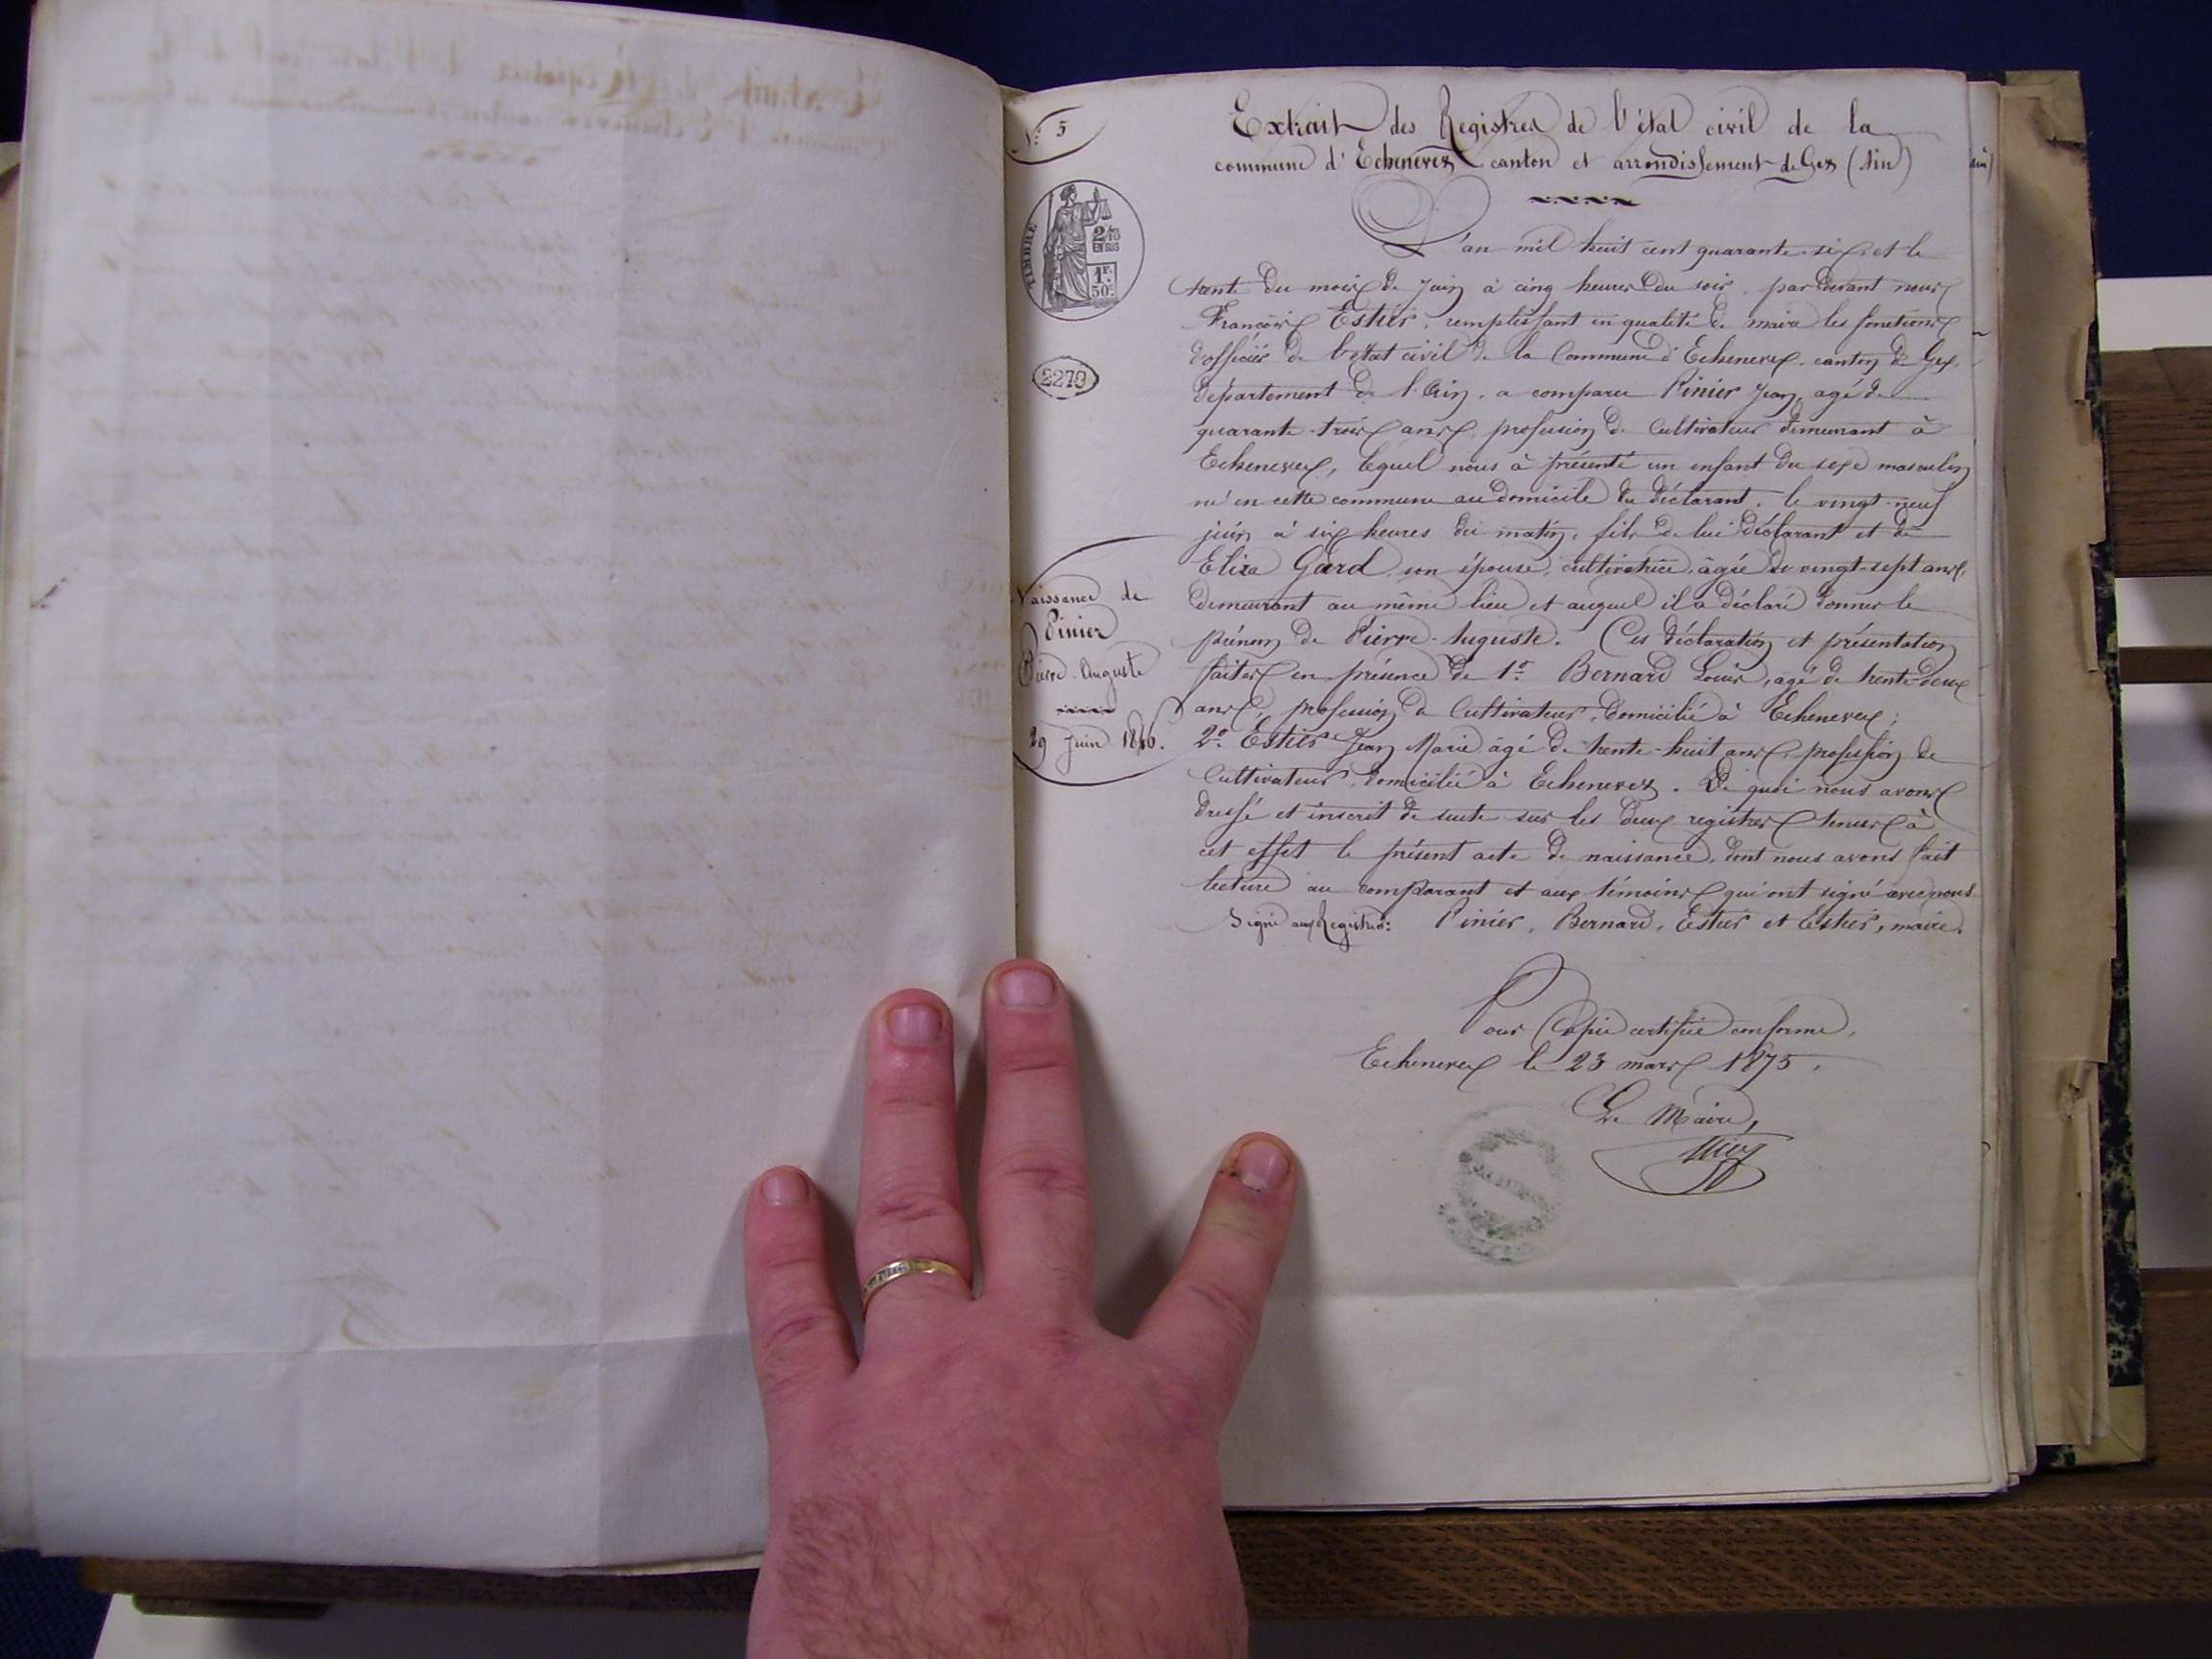 N° 5
Extrait des Registres de l'état civil de la
commune d'Echenevex canton et arrondissement de Gex (Ain)
TIMBRE
2/10
EN SUS
1F.
50c.
2279
L'an mil huit cent quarante-six, et le
trente du mois de Juin à cinq heures du soir, par devant nous
François Estier, remplissant en qualité de maire les fonctions
d'officier de l'état civil de la Commune d'Echenevex, canton de Gex,
département de l'Ain, a comparu Pinier Jean, agé de
quarante-trois ans, profession de Cultivateur demeurant à
Echenevex, lequel nous à présenté un enfant du sexe masculin
né en cette commune au domicile du déclarant, le vingt-neuf
juin à six heures du matin, fils de lui déclarant et de
Eliza Gard son épouse, cultivatrice, âgée de vingt-sept ans,
demeurant au même lieu et auquel il a déclaré donner le
prénom de Pierre-Auguste. Ces déclaration et présentation
faites en présence de 1° Bernard Louis, agé de trente-deux
ans, profession de Cultivateur, domicilié à Echenevex;
2° Estier Jean Marie âgé de trente-huit ans, profession de
Cultivateur, domicilié à Echenevex. De quoi nous avons
dressé et inscrit de suite sur les deux registres tenus à
cet effet le présent acte de naissance, dont nous avons fait
lecture au comparant et aux témoins qui ont signé avec nous.
Signé aux Registres: Pinier, Bernard, Estier et Estier, maire.
Naissance de
Pinier
Pierre-Auguste
29 Juin 1846.
Pour Copie certifiée conforme,
Echenevex le 23 mars 1875,
Le Maire,